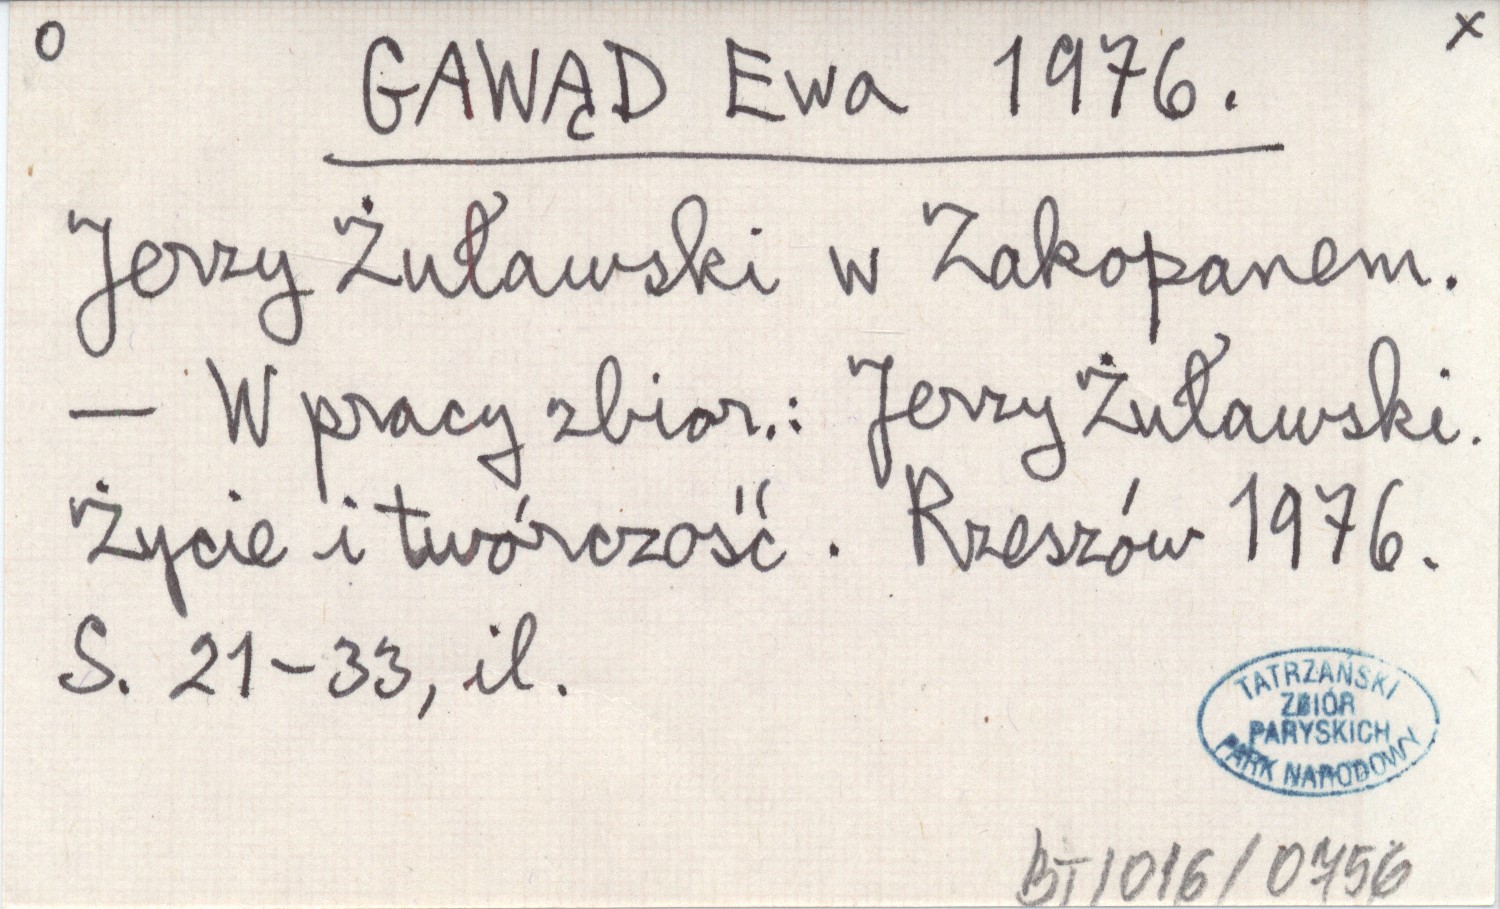 o x
GAWĄD Ewa 1976.
Jerzy Żuławski w Zakopanem.
— W pracy zbior.: Jerzy Żuławski.
Życie i twórczość. Rzeszów 1976.
S. 21-33, il.
TATRZAŃSKI
ZBIÓR
PARYSKICH
PARK NARODOWY
BT/016/0756